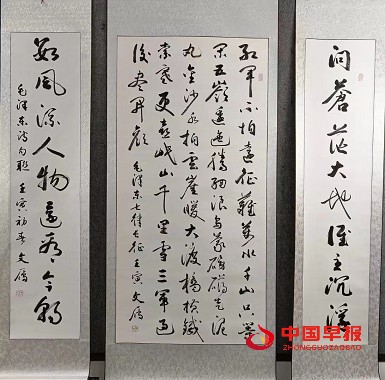 问蒼茫大地谁主沉浮
红军不怕遠征難万水千山只等
闲五嶺逶迤腾细浪乌蒙磅礴走泥
丸金沙水拍雲崖暖大渡橋横鐵
索寒更喜岷山千里雪三軍過
後盡开颜 毛泽东七律长征 壬寅 文
数風流人物還看今朝
毛泽东诗句联 壬寅初春 文
中国早报
ZHONGGUOZAOBAO